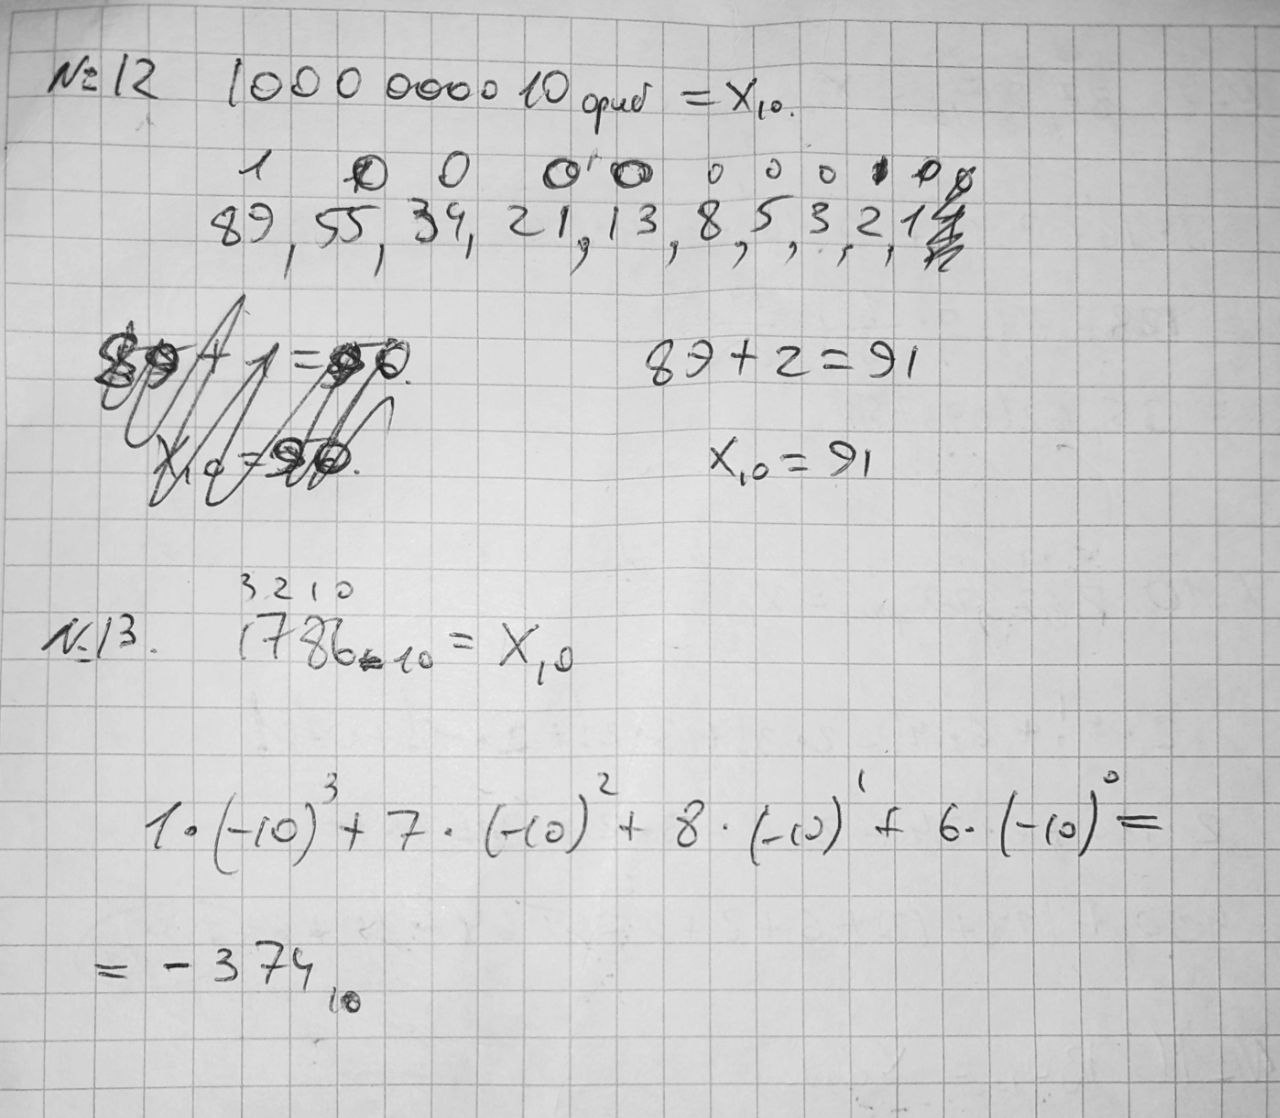 №12 1000000010 фиб = X₁₀.
1 0 0 0 0 0 0 0 1 0
89, 55, 34, 21, 13, 8, 5, 3, 2, 1
89 + 2 = 91
X₁₀ = 91
3 2 1 0
№13. 1786₋₁₀ = X₁₀
1·(-10)³ + 7·(-10)² + 8·(-10)¹ + 6·(-10)⁰ =
= -374₁₀